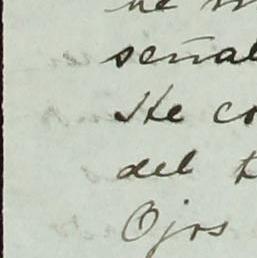 señal
He co
del
Ojos